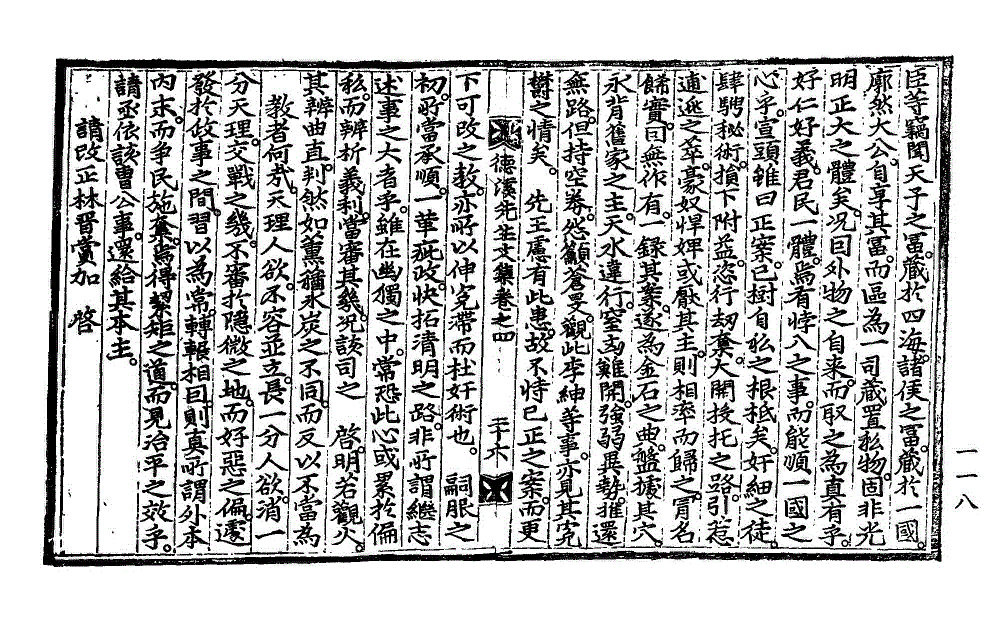 臣等竊聞天子之富。藏於四海。諸侯之富。藏於一國。
廓然大公。自享其富。而區區爲一司藏置私物。固非光
明正大之體矣。況曰外物之自來。而取之爲眞有乎。
好仁好義。君民一體。焉有悖入之事而能順一國之
心乎。宣頭雖曰正案。已樹自私之根柢矣。奸細之徒。
肆騁秘術。損下附益。恣行刼奪。大開投托之路。引惹
逋逃之萃。豪奴悍婢或厭其主。則相率而歸之。冐名
餙實。曰無作有。一錄其案。遂爲金石之典。盤據其穴。
永背舊家之主。天水違行。窒塞難開。強弱異勢。推還
無路。但持空券。怨籲蒼旻。觀此李紳等事。亦見其寃
欝之情矣。 先王慮有此患。故不恃已正之案。而更
德溪先生文集卷之四 二十六
下可改之敎。亦所以伸寃滯而杜奸術也。 嗣服之
初。所當承順。一革疵政。快拓淸明之路。非所謂繼志
述事之大者乎。雖在幽獨之中。常恐此心或累於偏
私。而辨析義利。當審其幾。況該司之 啓。明若觀火。
其辨曲直。判然如薰蕕氷炭之不同。而反以不當爲
敎者何㦲。天理人欲。不容並立。長一分人欲。消一
分天理。交戰之幾。不審於隱微之地。而好惡之偏。遽
發於政事之間。習以爲常。轉輾相囘。則眞所謂外本
內末。而爭民施奪。焉得絜矩之道。而見治平之效乎。
請亟依該曹公事。還給其本主。
請改正林晋賞加 啓
一一八